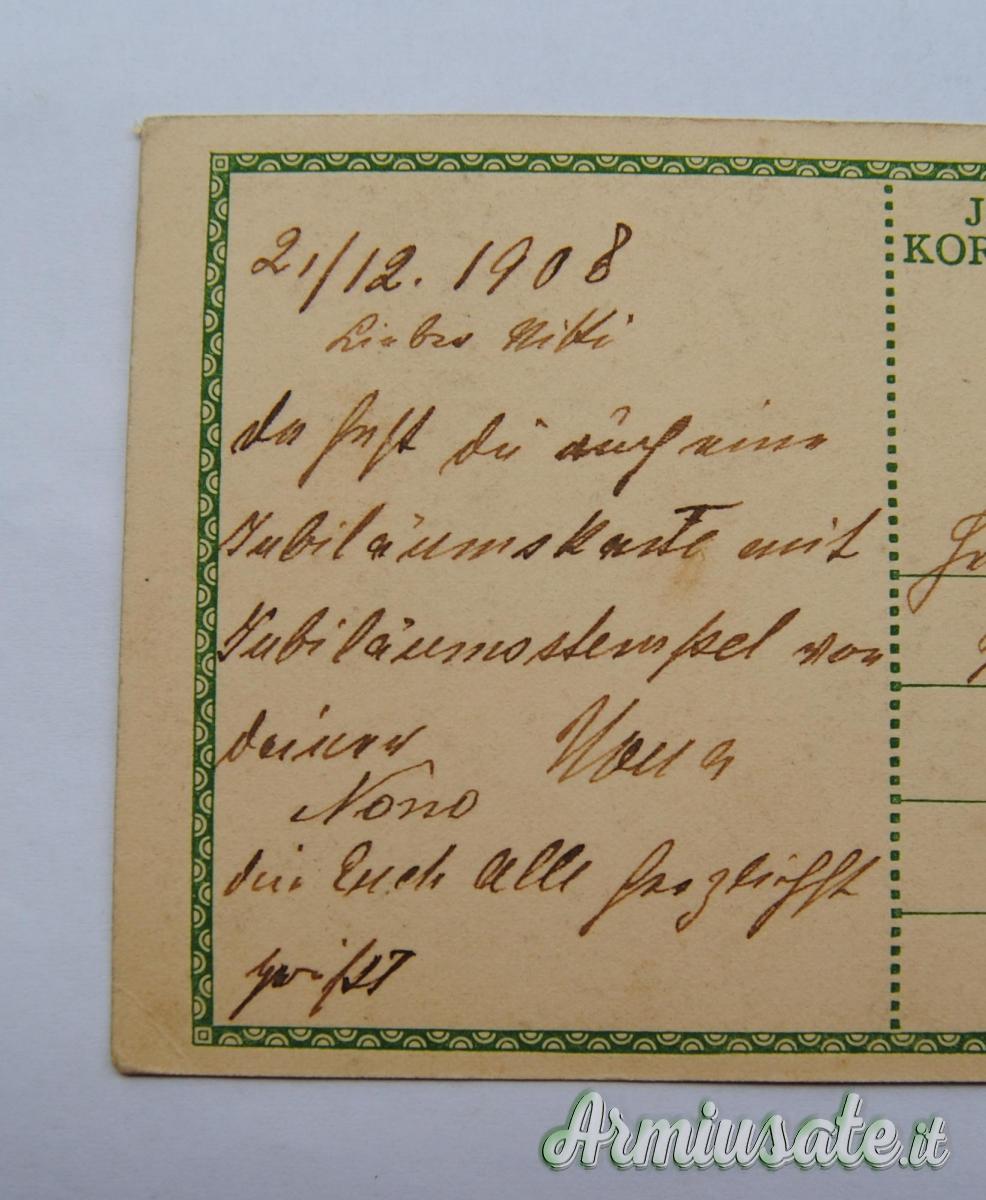 2./12. 1908
Lieber Nitti
da hast du auch eine
Jubiläumskarte mit
Jubiläumsstempel von
deiner Nona
Nono
die Euch Alle herzlichst
grüßt
J
KOR
Armiusate.it